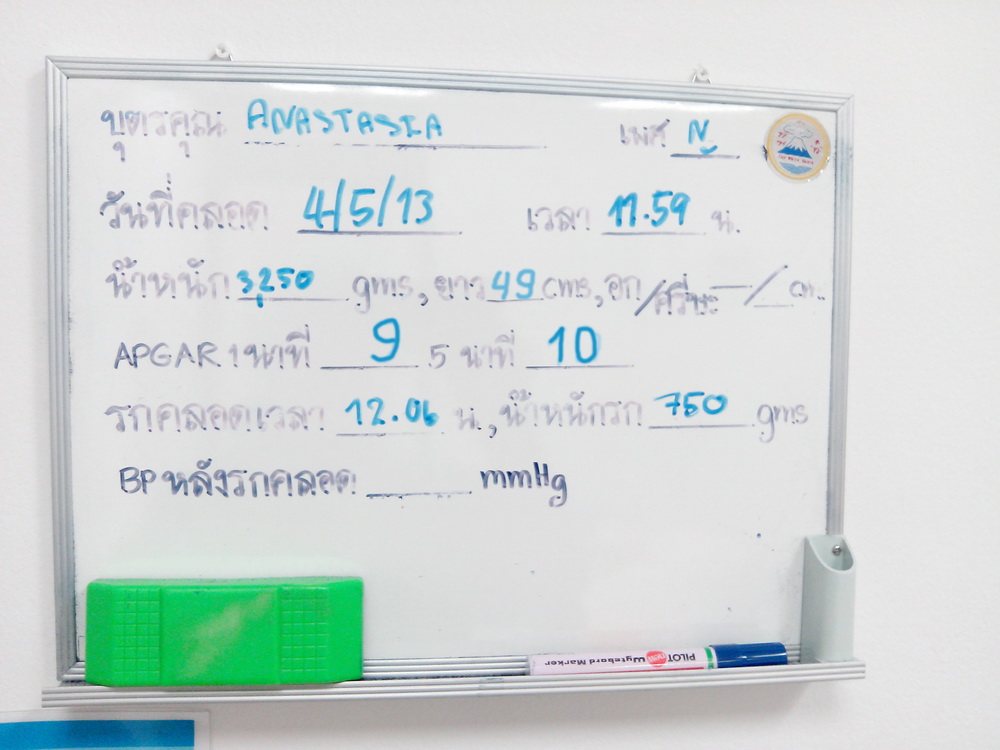 บุตรคุณ ANASTASIA เพศ
วันที่คลอด 4/5/13 เวลา 11.59 น.
น้ำหนัก 3,250 gms, ยาว 49 cms, อก/ศรีษะ —/ cm.
APGAR 1 นาที 9 5 นาที 10
รกคลอดเวลา 12.06 น., น้ำหนักรก 750 gms
BP หลังรกคลอด mmHg
PILOT Wyteboard Marker